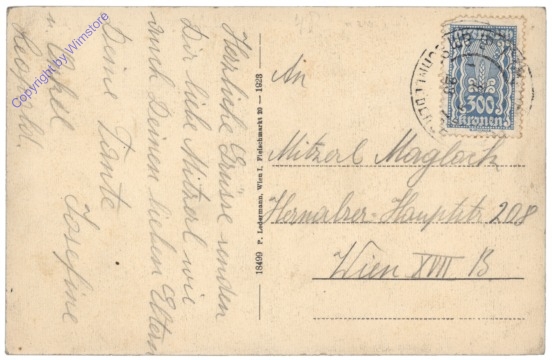 Herzliche Grüsse senden
Dir liebe Mitzerl wie
auch Deinen lieben Eltern
Deine Tante Josefine
u. Onkel
Leopold.
18499 P. Ledermann, Wien I., Fleischmarkt 20 — 1923
An
Mitzerl Maglock
Hernalser-Hauptstr 208
Wien XVII B
300
Kronen
Copyright by Wimstore